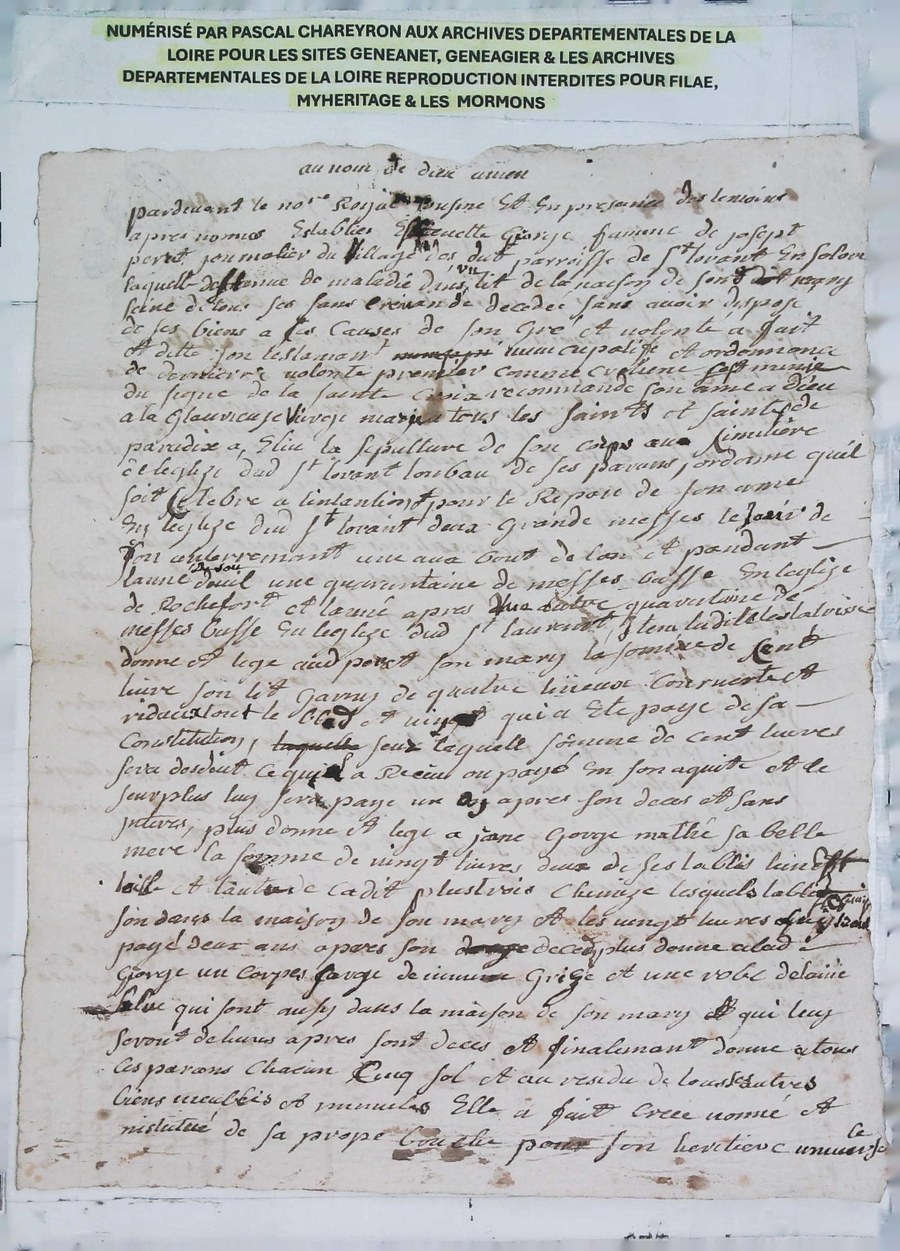 NUMÉRISÉ PAR PASCAL CHAREYRON AUX ARCHIVES DEPARTEMENTALES DE LA
LOIRE POUR LES SITES GENEANET, GENEAGIER & LES ARCHIVES
DEPARTEMENTALES DE LA LOIRE REPRODUCTION INTERDITES POUR FILAE,
MYHERITAGE & LES MORMONS
au nom de dieu amen
pardevant le no.re Royal Et En presance des temoins
apres nomes Establies George famme de josept
peret journalier du village des parroisse de St lorant En solore
laquelle de maladie dans un lit de la maison de son mary
seine de tous ses sans crenande decedee sans avoir dispose
de ses biens a ses Causes de son Gré et volonté a fait
et ditte son testamant nuncupatife et ordonnance
de derniere volonte premier comme cretiene munie
du signe de la sainte Croix recommande son ame a Dieu
a la Glaurieuse Vierge marie a tous les saints et saintes de
paradix a Eliu la sepulture de son corps au Simetière
de leglize dud St lorant tonbau de ses parans, ordonne quil
soit Celebre a lintantion et pour le Repose de son ame
En leglize dud St lorant deux Grande messes le jour de
son anterremant une aux bout de lan et pandant
lanné deuil une quarantaine de messes basse En leglize
de Rochefort et lanné apres Une autre quarantene de
messes basse En leglize dud St laurant,
donne et lege aud peret son mary la somme de Cent
livre son lit garny de quatre lineux Couverte et
ridaux tout le et qui a Ete paye de sa
Constitution, laquelle seur laquell somme de cent livres
sera desduit ce quil a Receu ou payé En son aquite et le
seurplus luy sera paye un an apres son deces et sans
interes, plus donne et lege a jane George mathé sa belle
mere la somme de vingt livres deux de ses tablis lun
toille et lautre de Cadit plus trois Chemize lesquels tablié
son dans la maison de son mary et les vingt livres
payé deux ans apres son deces, plus donne a lad
George un Corpes sarge de Grize et une robe de laine
qui sont ausy dans la maison de son mary et qui luy
seront delivres apres sont deces et finalemant donne a tous
ces parans Chacun Cinq sol et au residu de tous ses autres
biens meubles et inmubles Elle a fait Cree nomé et
nistitué de sa prope bouche pour son heritiere universelle